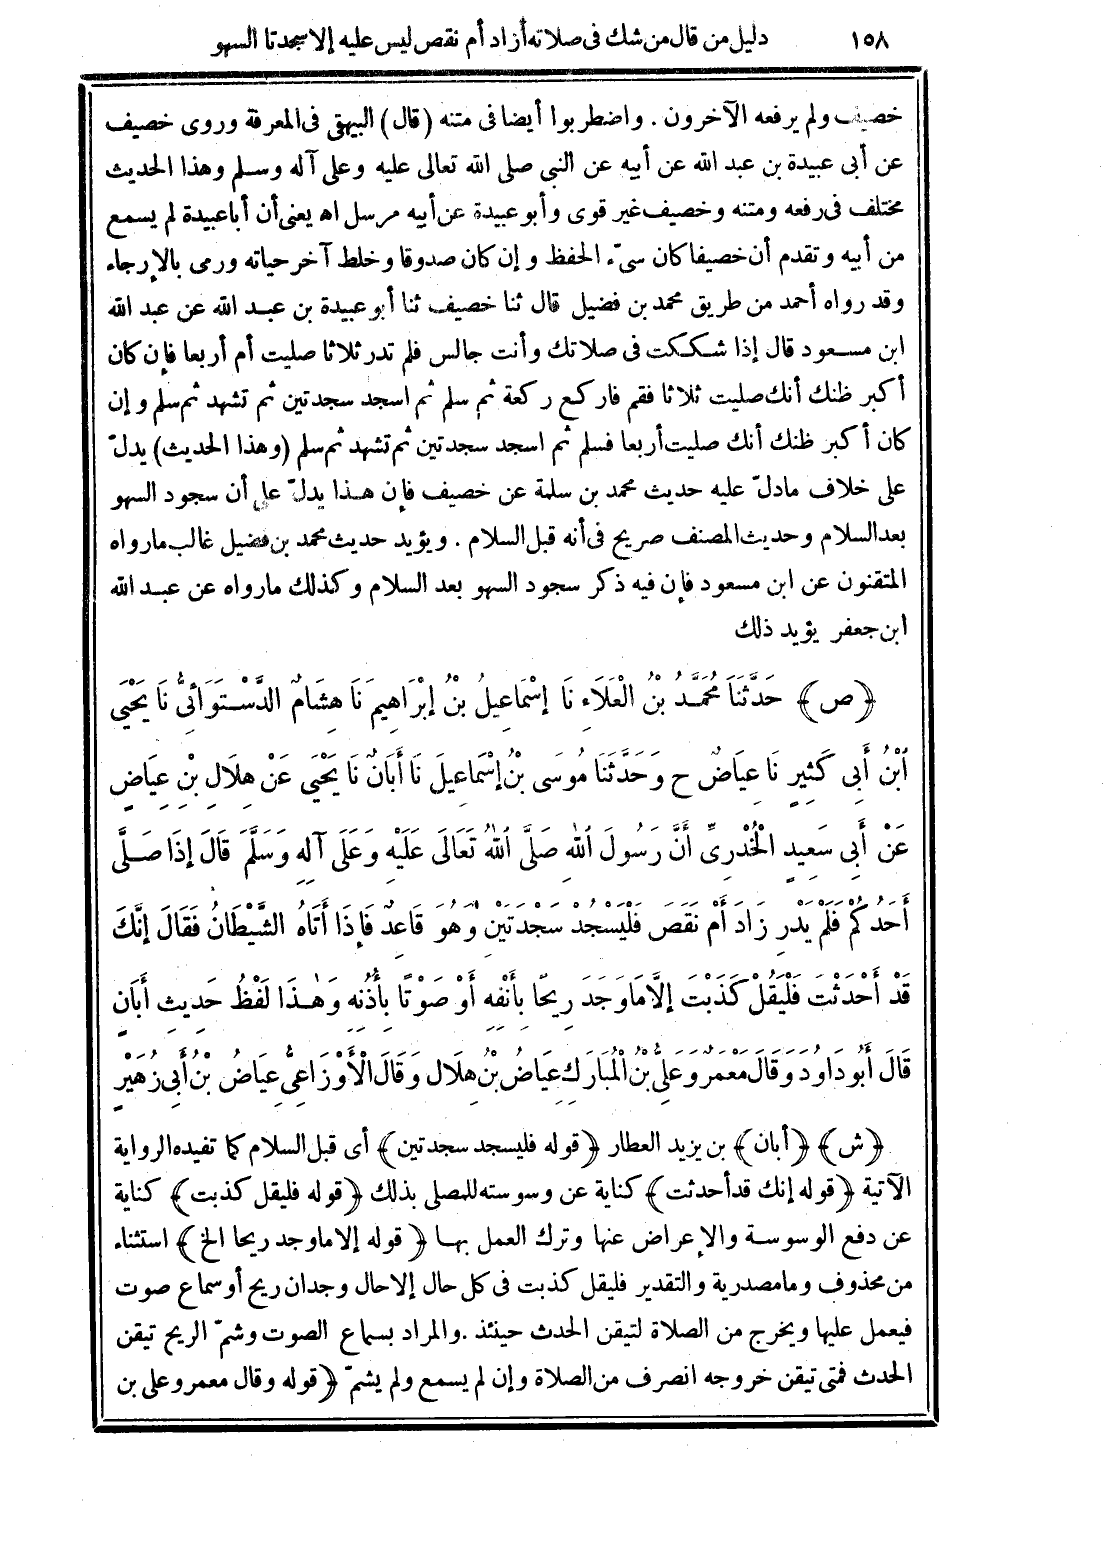 ١٥٨ دليل من قال من شك فى صلاته أزاد أم نقص ليس عليه إلا سجدتا السهو
خصيف ولم يرفعه الآخرون . واضطربوا أيضا فى متنه (قال) البيهقى فى المعرفة وروى خصيف
عن أبى عبيدة بن عبد الله عن أبيه عن النبى صلى الله تعالى عليه وعلى آله وسلم وهذا الحديث
مختلف فى رفعه ومتنه وخصيف غير قوى وأبو عبيدة عن أبيه مرسل اه يعنى أن أبا عبيدة لم يسمع
من أبيه وتقدم أن خصيفا كان سيّء الحفظ وإن كان صدوقا وخلط آخر حياته ورمى بالإرجاء
وقد رواه أحمد من طريق محمد بن فضيل قال ثنا خصيف ثنا أبو عبيدة بن عبد الله عن عبد الله
ابن مسعود قال إذا شككت فى صلاتك وأنت جالس فلم تدر ثلاثا صليت أم أربعا فإن كان
أكبر ظنك أنك صليت ثلاثا فقم فاركع ركعة ثم سلم ثم اسجد سجدتين ثم تشهد ثم سلم وإن
كان أكبر ظنك أنك صليت أربعا فسلم ثم اسجد سجدتين ثم تشهد ثم سلم (وهذا الحديث) يدلّ
على خلاف مادلّ عليه حديث محمد بن سلمة عن خصيف فإن هذا يدلّ على أن سجود السهو
بعد السلام وحديث المصنف صريح فى أنه قبل السلام . ويؤيد حديث محمد بن فضيل غالب مارواه
المتقنون عن ابن مسعود فإن فيه ذكر سجود السهو بعد السلام وكذلك مارواه عن عبد الله
ابن جعفر يؤيد ذلك
﴿ص﴾ حَدَّثَنَا مُحَمَّدُ بْنُ الْعَلَاءِ نَا إِسْمَاعِيلُ بْنُ إِبْرَاهِيمَ نَا هِشَامٌ الدَّسْتَوَائِىُّ نَا يَحْيَى
ابْنُ أَبِى كَثِيرٍ نَا عِيَاضٌ ح وَحَدَّثَنَا مُوسَى بْنُ إِسْمَاعِيلَ نَا أَبَانٌ نَا يَحْيَى عَنْ هِلَالِ بْنِ عِيَاضٍ
عَنْ أَبِى سَعِيدٍ الْخُدْرِىِّ أَنَّ رَسُولَ اللهِ صَلَّى اللهُ تَعَالَى عَلَيْهِ وَعَلَى آلِهِ وَسَلَّمَ قَالَ إِذَا صَلَّى
أَحَدُكُمْ فَلَمْ يَدْرِ زَادَ أَمْ نَقَصَ فَلْيَسْجُدْ سَجْدَتَيْنِ وَهُوَ قَاعِدٌ فَإِذَا أَتَاهُ الشَّيْطَانُ فَقَالَ إِنَّكَ
قَدْ أَحْدَثْتَ فَلْيَقُلْ كَذَبْتَ إِلَّا مَا وَجَدَ رِيحًا بِأَنْفِهِ أَوْ صَوْتًا بِأُذُنِهِ وَهٰذَا لَفْظُ حَدِيثِ أَبَانٍ
قَالَ أَبُو دَاوُدَ وَقَالَ مَعْمَرٌ وَعَلِىُّ بْنُ الْمُبَارَكِ عِيَاضُ بْنُ هِلَالٍ وَقَالَ الْأَوْزَاعِىُّ عِيَاضُ بْنُ أَبِى زُهَيْرٍ
﴿ش﴾ ﴿أبان﴾ بن يزيد العطار ﴿قوله فليسجد سجدتين﴾ أى قبل السلام كما تفيده الرواية
الآتية ﴿قوله إنك قد أحدثت﴾ كناية عن وسوسته للمصلى بذلك ﴿قوله فليقل كذبت﴾ كناية
عن دفع الوسوسة والإعراض عنها وترك العمل بها ﴿قوله إلا ماوجد ريحا الخ﴾ استثناء
من محذوف وما مصدرية والتقدير فليقل كذبت فى كل حال إلا حال وجدان ريح أو سماع صوت
فيعمل عليها ويخرج من الصلاة لتيقن الحدث حينئذ .والمراد بسماع الصوت وشمّ الريح تيقن
الحدث فمتى تيقن خروجه انصرف من الصلاة وإن لم يسمع ولم يشمّ ﴿قوله وقال معمر وعلى بن